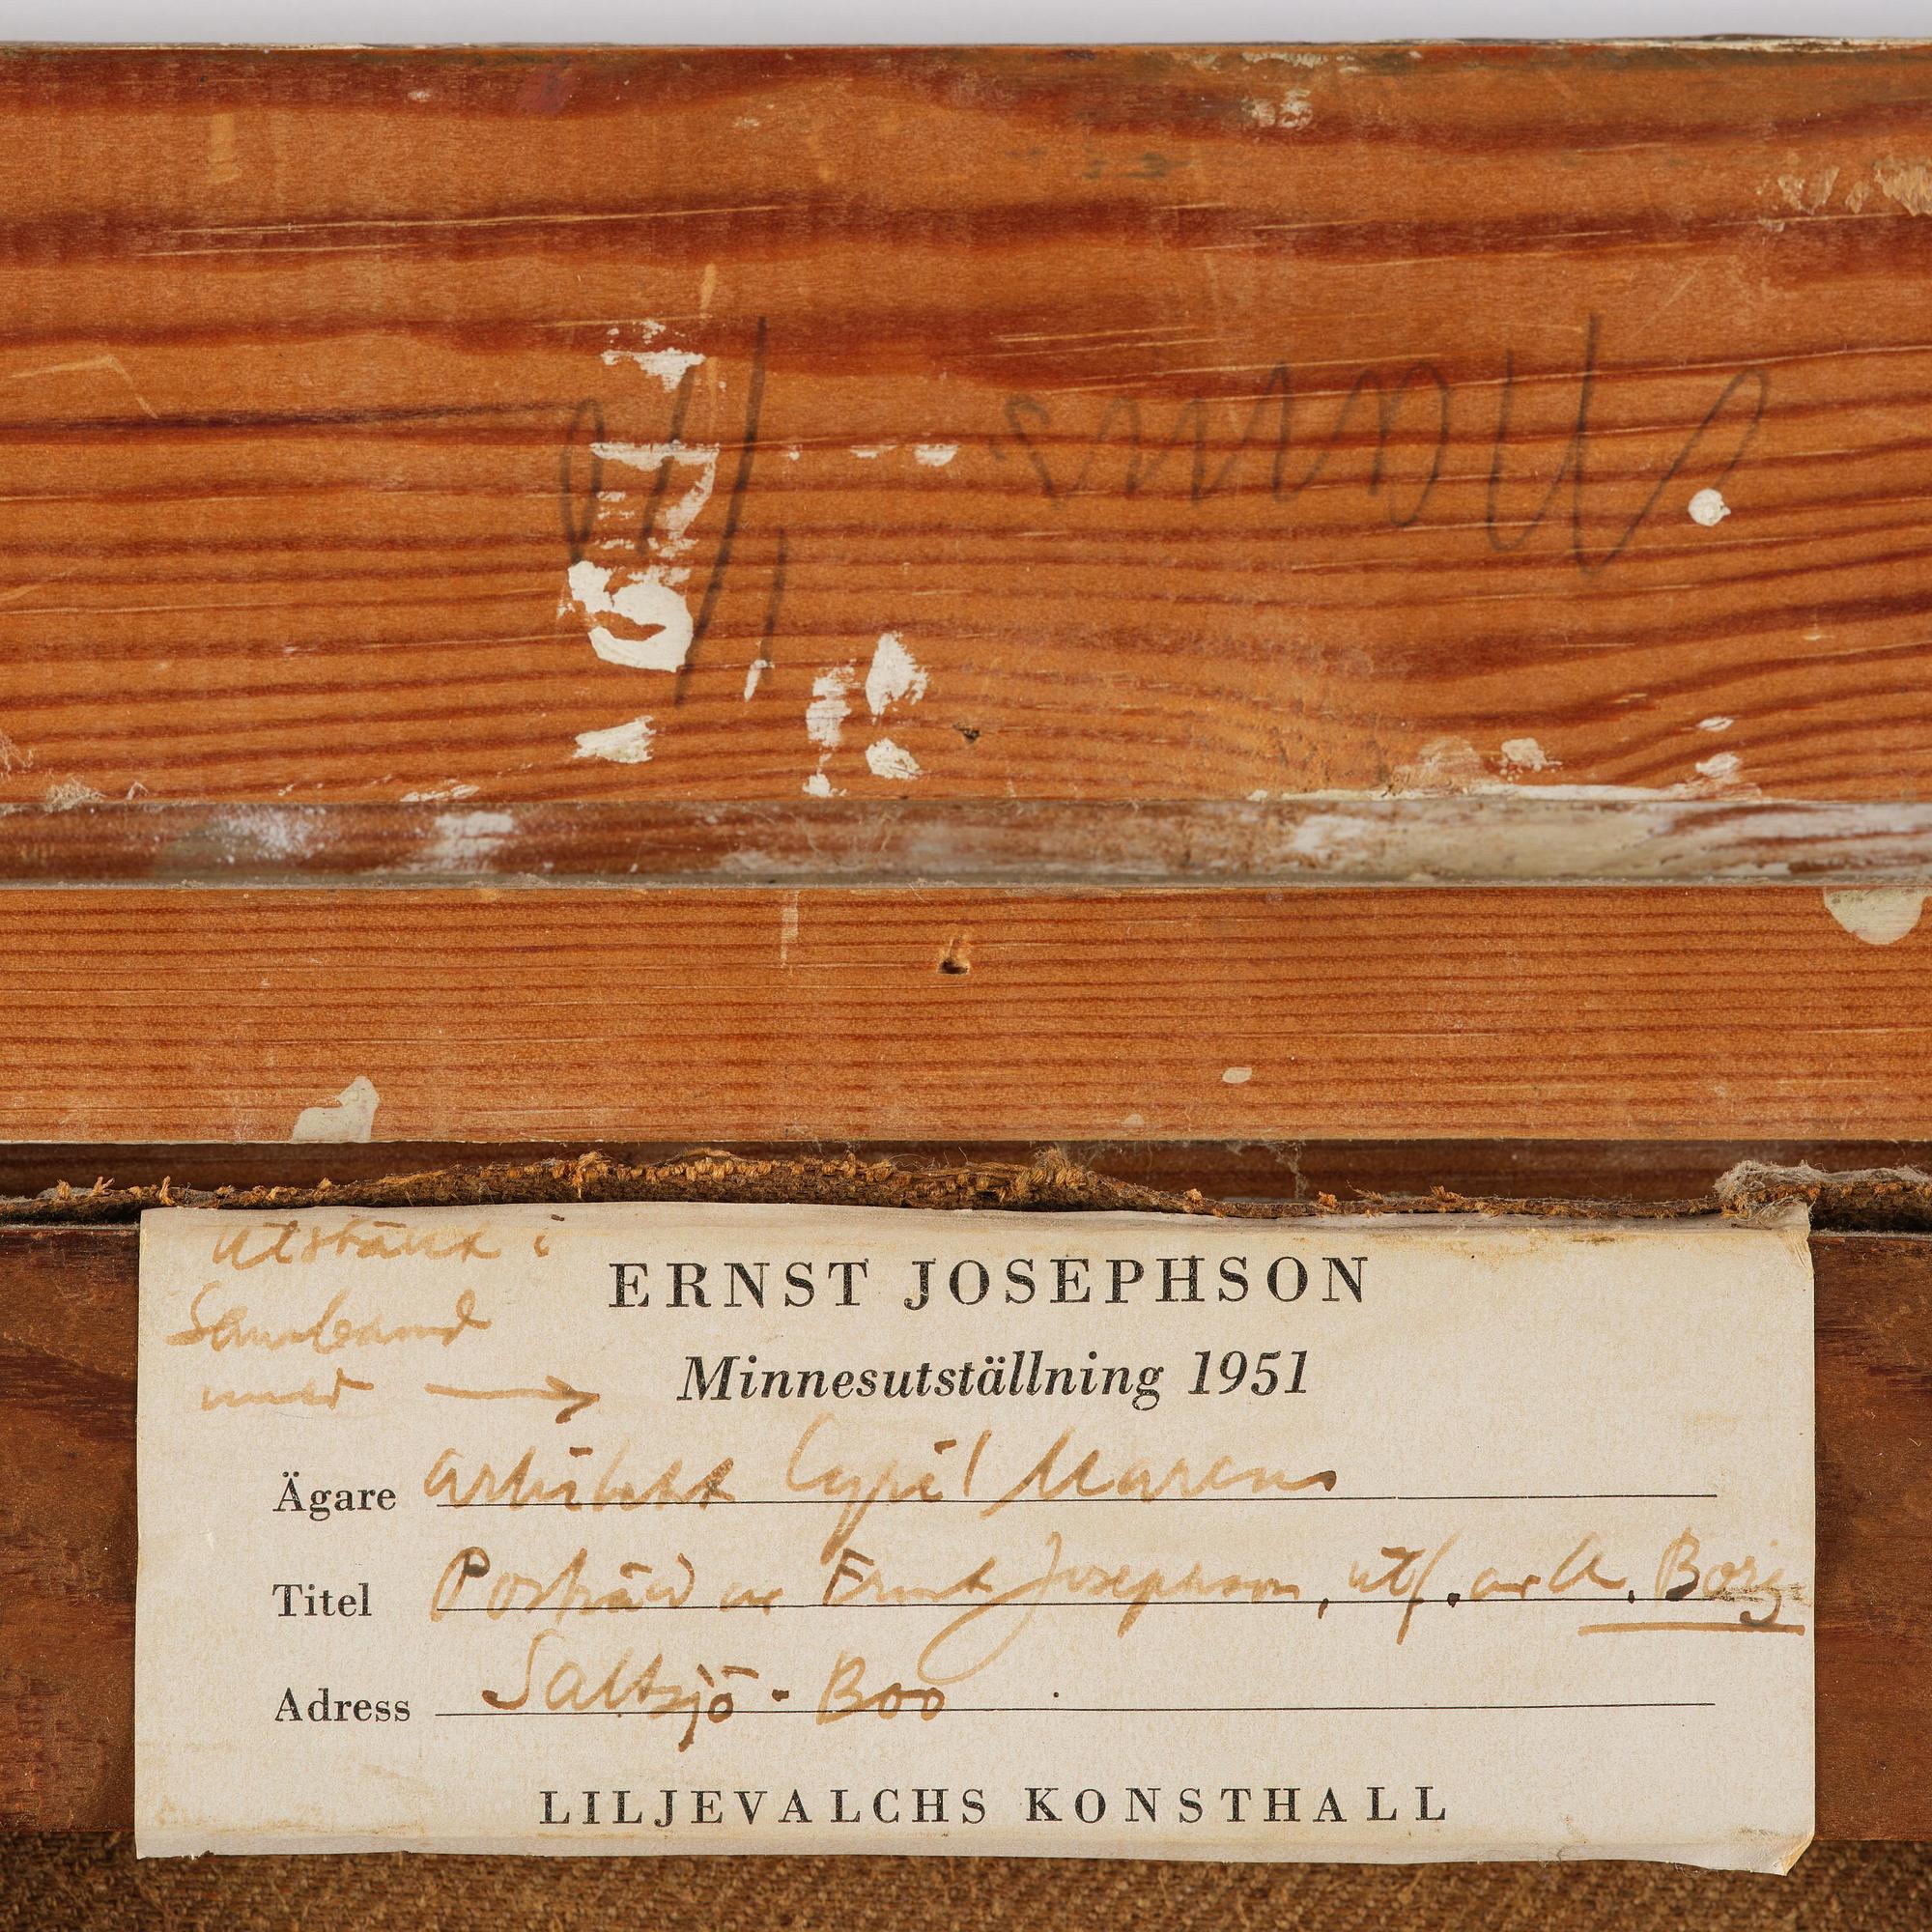 utställt i
Samband
med →
ERNST JOSEPHSON
Minnesutställning 1951
Ägare arkitekt Cyril Marcus
Titel Porträtt av Ernst Josephson, utf. av A. Borg
Adress Saltsjö-Boo
LILJEVALCHS KONSTHALL